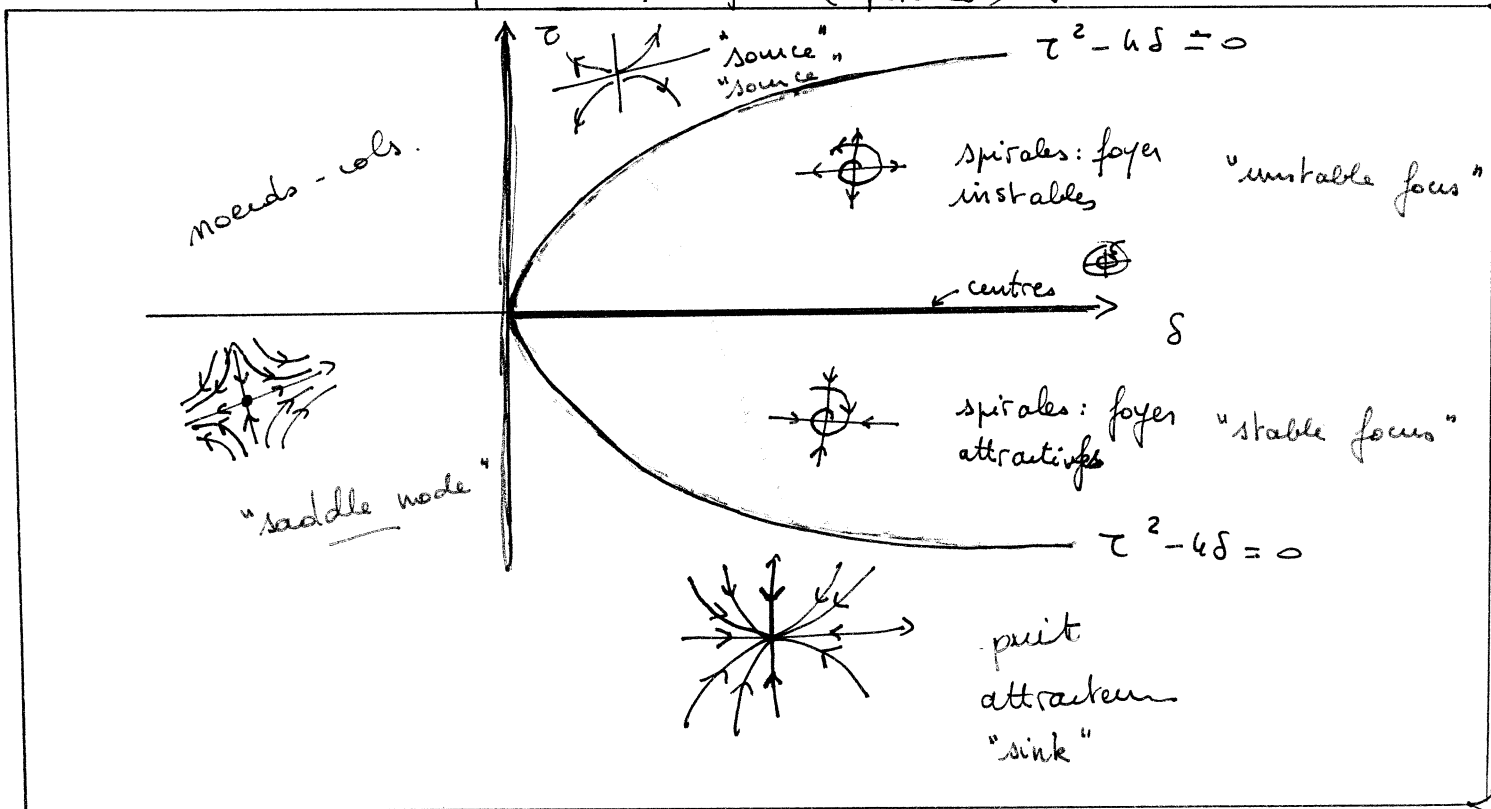 τ
"source"
"source"
τ² - 4δ = 0
noeuds - cols.
spirales: foyer
instables
"unstable focus"
centres
δ
spirales: foyer
attractifs
"stable focus"
"saddle node"
τ² - 4δ = 0
puit
attracteur
"sink"